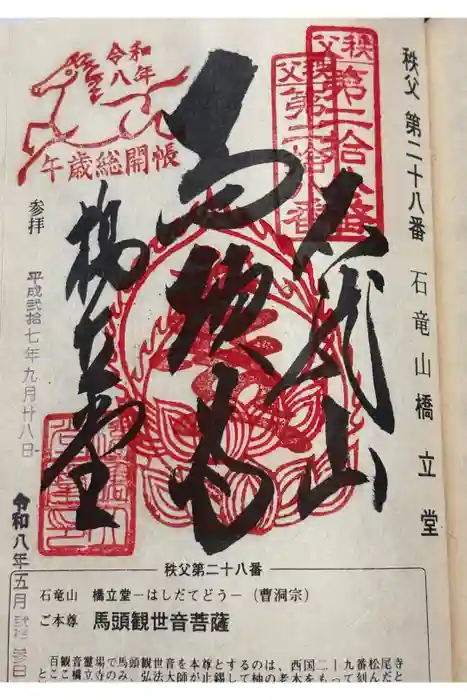 秩父 第二十八番 石竜山橋立堂
秩父
第二拾八番
秩父
第二拾八番
石竜山
馬頭尊
橋立堂
令和
八年
午歳総開帳
参拝
平成弐拾七年九月廿八日
令和八年五月弐拾参日
秩父第二十八番
石竜山 橋立堂―はしだてどう―（曹洞宗）
ご本尊 馬頭観世音菩薩
百観音霊場で馬頭観世音を本尊とするのは、西国二十九番松尾寺
とここ橋立寺のみ、弘法大師が止錫して柚の老木をもって刻んだと